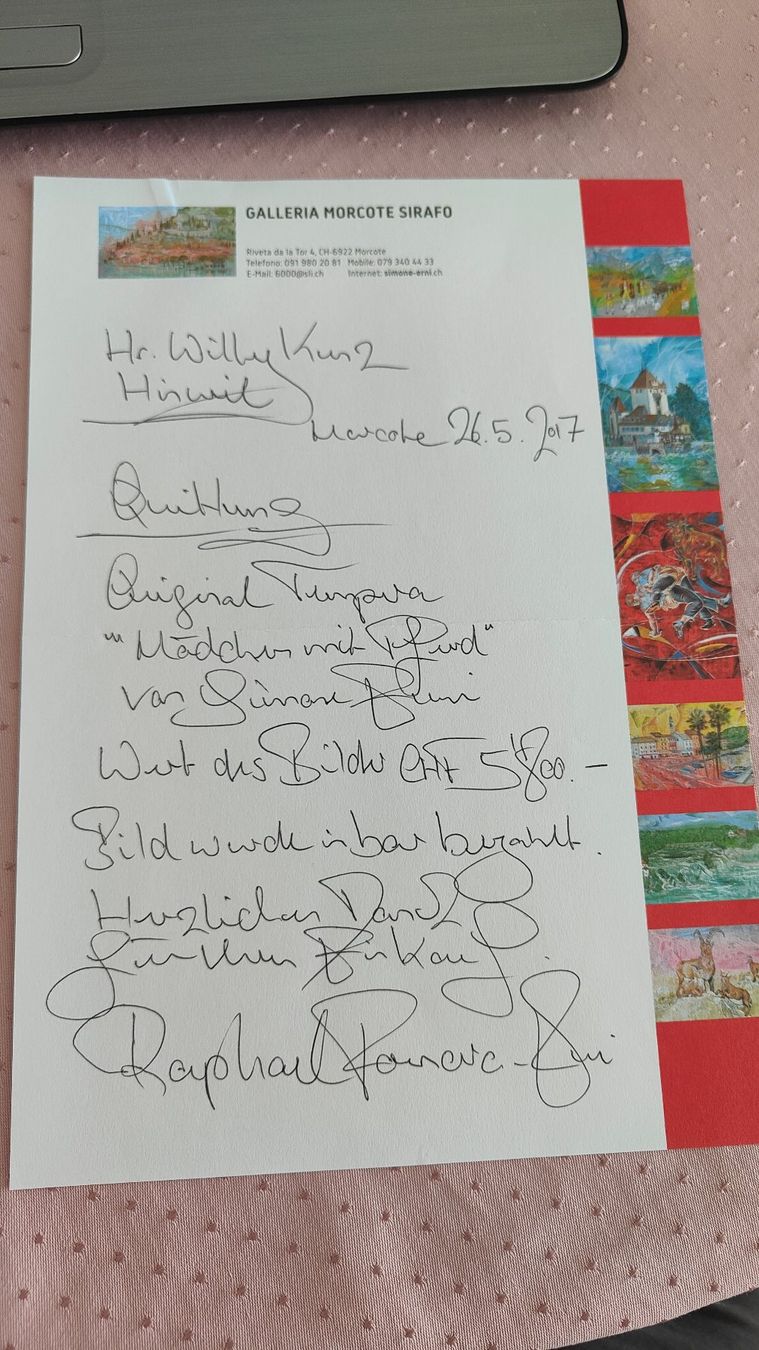 GALLERIA MORCOTE SIRAFO
Riveta da la Tor 4, CH-6922 Morcote
Telefono: 091 980 20 81 Mobile: 079 340 44 33
E-Mail: 6000@sli.ch Internet: simone-erni.ch
Hr. Willy Kunz
Hinwil
Morcote 26.5.2017
Quittung
Original Tempera
"Mädchen mit Pferd"
von Simone Erni
Wert des Bildes CHF 5'800.-
Bild wurde in bar bezahlt.
Herzlichen Dank
für Ihren Einkauf.
Raphael -Erni